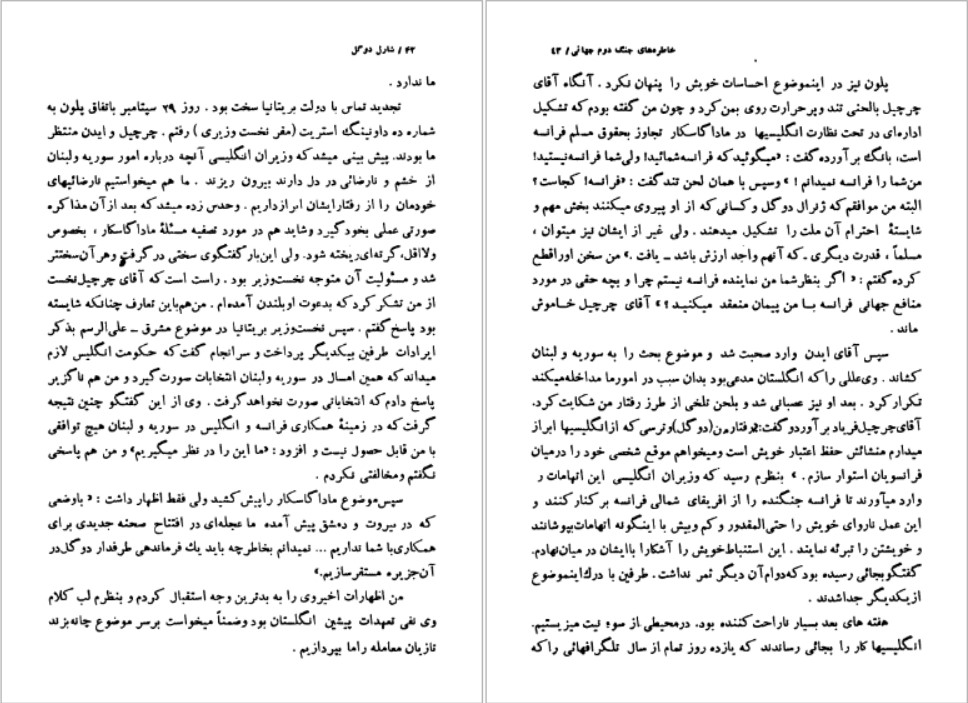 ۴۲ / شارل دوگل
ما ندارد .
تجدید تماس با دولت بریتانیا سخت بود . روز ۲۹ سپتامبر باتفاق پلون به
شماره ده داونینگ استریت (مقر نخست وزیری ) رفتم . چرچیل و ایدن منتظر
ما بودند. پیش بینی میشد که وزیران انگلیسی آنچه درباره امور سوریه ولبنان
از خشم و نارضائی در دل دارند بیرون ریزند . ما هم میخواستیم نارضائیهای
خودمان را از رفتارایشان ابرازداریم . وحدس زده میشد که بعد از آن مذاکره
صورتی عملی بخود گیرد وشاید هم در مورد تصفیه مسئلهٔ ماداگاسکار ، بخصوص
ولااقل، گرته‌ای ریخته شود. ولی این‌بار گفتگوی سختی در گرفت وهر آن سختتر
شد و مسئولیت آن متوجه نخست‌وزیر بود . راست است که آقای چرچیل نخست
از من تشکر کرد که بدعوت اوبلندن آمده‌ام . من‌هم باین تعارف چنانکه شایسته
بود پاسخ گفتم . سپس نخست‌وزیر بریتانیا در موضوع مشرق ــ علی‌الرسم بذکر
ایرادات طرفین بیکدیگر پرداخت و سرانجام گفت که حکومت انگلیس لازم
میداند که همین امسال در سوریه ولبنان انتخابات صورت گیرد و من هم ناگزیر
پاسخ دادم که انتخاباتی صورت نخواهد گرفت . وی از این گفتگو چنین نتیجه
گرفت که در زمینهٔ همکاری فرانسه و انگلیس در سوریه و لبنان هیچ توافقی
با من قابل حصول نیست و افزود : «ما این را در نظر میگیریم» و من هم پاسخی
نگفتم ومخالفتی نکردم .
سپس موضوع ماداگاسکار راپیش کشید ولی فقط اظهار داشت : « باوضعی
که در بیروت و دمشق پیش آمده ما عجله‌ای در افتتاح صحنه جدیدی برای
همکاری با شما نداریم ... نمیدانم بخاطرچه باید یك فرماندهی طرفدار دوگل در
آن جزیره مستقر سازیم.»
من اظهارات اخیروی را به بدترین وجه استقبال کردم و بنظرم لب کلام
وی نفی تعهدات پیشین انگلستان بود وضمناً میخواست برسر موضوع چانه‌بزند
تازیان معامله راما بپردازیم .
خاطره‌های جنگ دوم جهانی / ۴۳
پلون نیز در اینموضوع احساسات خویش را پنهان نکرد . آنگاه آقای
چرچیل بالحنی تند وپرحرارت روی بمن کرد و چون من گفته بودم که تشکیل
اداره‌ای در تحت نظارت انگلیسیها در ماداگاسکار تجاوز بحقوق مسلم فرانسه
است، بانگ بر آورده گفت : «میگوئید که فرانسه شمائید! ولی شما فرانسه نیستید!
من شما را فرانسه نمیدانم ! » وسپس با همان لحن تند گفت : «فرانسه! کجاست؟
البته من موافقم که ژنرال دوگل و کسانی که از او پیروی میکنند بخش مهم و
شایستهٔ احترام آن ملت را تشکیل میدهند . ولی غیر از ایشان نیز میتوان ،
مسلماً ، قدرت دیگری ــ که آنهم واجد ارزش باشد ــ یافت .» من سخن اوراقطع
کرده گفتم : « اگر بنظر شما من نماینده فرانسه نیستم چرا و بچه حقی در مورد
منافع جهانی فرانسه بـا من پیمان منعقد میکنید ؟ » آقای چرچیل خـاموش
ماند .
سپس آقای ایدن وارد صحبت شد و موضوع بحث را به سوریه و لبنان
کشاند . وی‌عللی را که انگلستان مدعی‌بود بدان سبب در امورما مداخله میکند
تکرار کرد . بعد او نیز عصبانی شد و بلحن تلخی از طرز رفتار من شکایت کرد.
آقای‌چرچیل‌فریاد بر آورد و گفت: «رفتار من (دوگل) و ترسی که از انگلیسها ابراز
میدارم منشائش حفظ اعتبار خویش است ومیخواهم موقع شخصی خود را درمیان
فرانسویان استوار سازم . » بنظرم رسید که وزیران انگلیسی این اتهامات ر
وارد میآورند تا فرانسه جنگنده را از افریقای شمالی فرانسه بر کنار کنند و
این عمل ناروای خویش را حتی‌المقدور و کم وبیش با اینگونه اتهامات بپوشانند
و خویشتن را تبرئه نمایند . این استنباط خویش را آشکارا باایشان در میان نهادم.
گفتگوبجائی رسیده بود که دوام آن دیگر ثمر نداشت . طرفین با درك اینموضوع
از یکدیگر جداشدند .
هفته های بعد بسیار ناراحت کننده بود. درمحیطی از سوء نیت میزیستیم.
انگلیسیها کار را بجائی رساندند که یازده روز تمام از سال تلگرافهائی را که